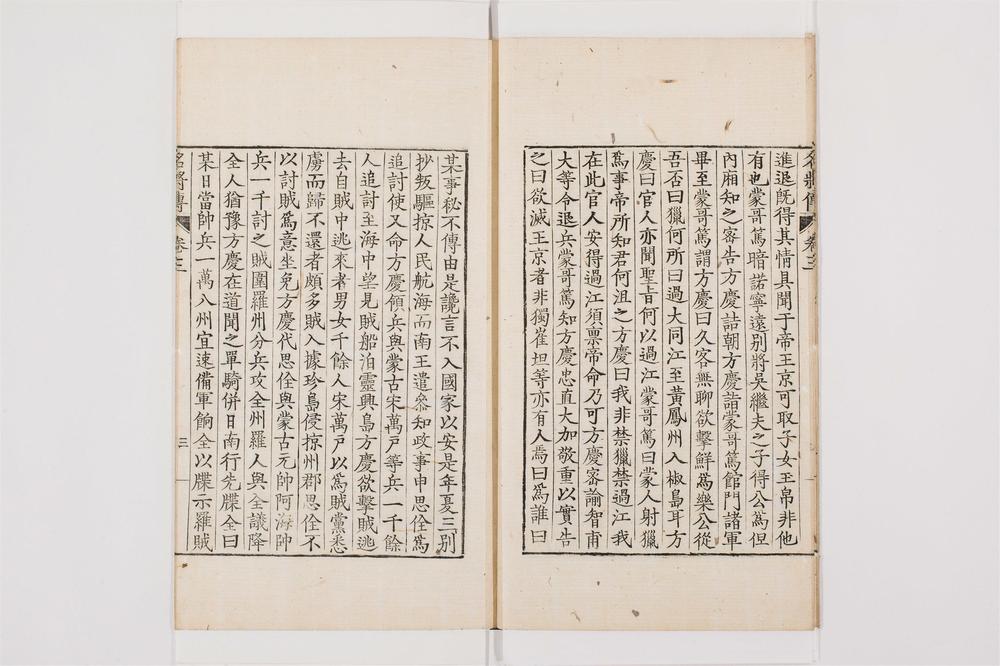 名將傳 卷三
進退旣得其情具聞于帝王京可取子女玉帛非他
有也蒙哥篤暗諾寧遠别將吳繼夫之子得公爲但
內廂知之密告方慶詰朝方慶詣蒙哥篤館門諸軍
畢至蒙哥篤謂方慶曰久客無聊欲擊鮮爲樂公從
吾否曰獵何所曰過大同江至黃鳳州入椒島耳方
慶曰官人亦聞聖旨何以過江蒙哥篤曰蒙人射獵
爲事帝所知君何沮之方慶曰我非禁獵禁過江我
在此官人安得過江須禀帝命乃可方慶密諭智甫
大等令退兵蒙哥篤知方慶忠直大加敬重以實告
之曰欲滅王京者非獨崔坦等亦有人焉曰爲誰曰
某事秘不傳由是讒言不入國家以安是年夏三别
抄叛驅掠人民航海而南王遣叅知政事申思佺爲
追討使又命方慶領兵與蒙古宋萬戶等兵一千餘
人追討至海中望見賊船泊靈興島方慶欲擊賊逃
去自賊中逃來者男女千餘人宋萬戶以爲賊黨悉
虜而歸不還者頗多賊入據珍島侵掠州郡思佺不
以討賊爲意坐免方慶代思佺與蒙古元帥阿海帥
兵一千討之賊圍羅州分兵攻全州羅人與全議降
全人猶豫方慶在道聞之單騎倂日南行先牒全曰
某日當帥兵一萬入州宜速備軍餉全以牒示羅賊
名將傳 卷三 三